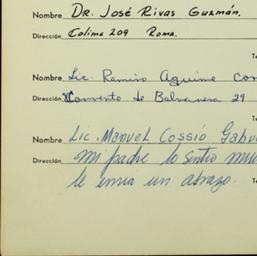 Nombre DR. JOSÉ RIVAS GUZMÁN.
Dirección Colima 209 Roma.
Nombre Lic. Ramiro Aguirre
Dirección Convento de Balvanera 29
Nombre Lic. Manuel Cossió
Dirección mi padre lo sintió
le envia un abrazo.